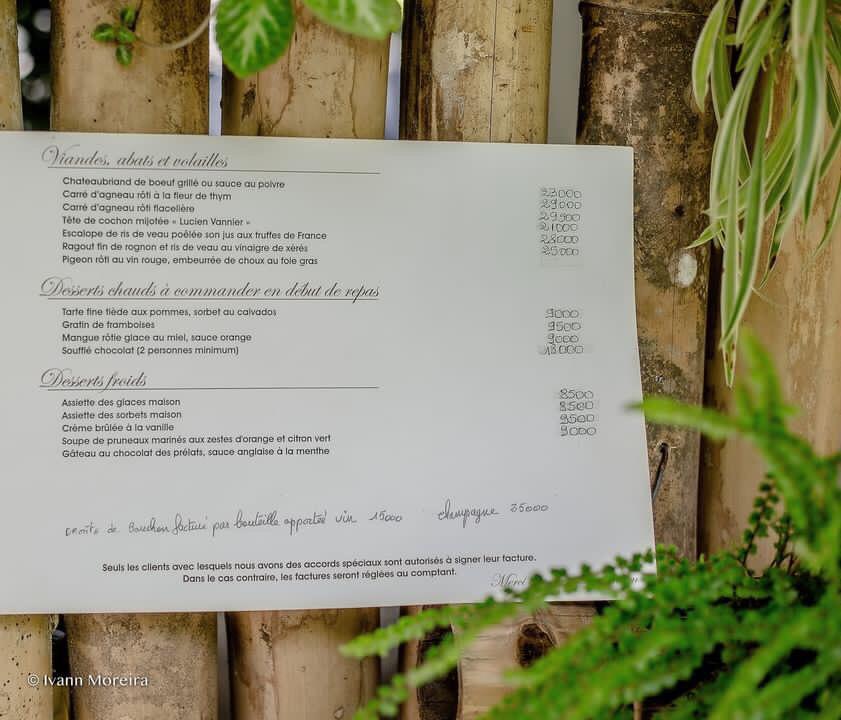 Viandes, abats et volailles
Chateaubriand de boeuf grillé ou sauce au poivre 23000
Carré d'agneau rôti à la fleur de thym 29000
Carré d'agneau rôti flacelière 29500
Tête de cochon mijotée « Lucien Vannier » 21000
Escalope de ris de veau poêlée son jus aux truffes de France 28000
Ragout fin de rognon et ris de veau au vinaigre de xérès 25000
Pigeon rôti au vin rouge, embeurrée de choux au foie gras
Desserts chauds à commander en début de repas
Tarte fine tiède aux pommes, sorbet au calvados 9000
Gratin de framboises 9500
Mangue rôtie glace au miel, sauce orange 9000
Soufflé chocolat (2 personnes minimum)
Desserts froids
Assiette des glaces maison 8500
Assiette des sorbets maison 8500
Crème brûlée à la vanille 9500
Soupe de pruneaux marinés aux zestes d'orange et citron vert 9000
Gâteau au chocolat des prélats, sauce anglaise à la menthe
Droits de Bouchon facturé par bouteille apportée vin 15000 champagne 35000
Seuls les clients avec lesquels nous avons des accords spéciaux sont autorisés à signer leur facture.
Dans le cas contraire, les factures seront réglées au comptant.
Merci
© Ivann Moreira